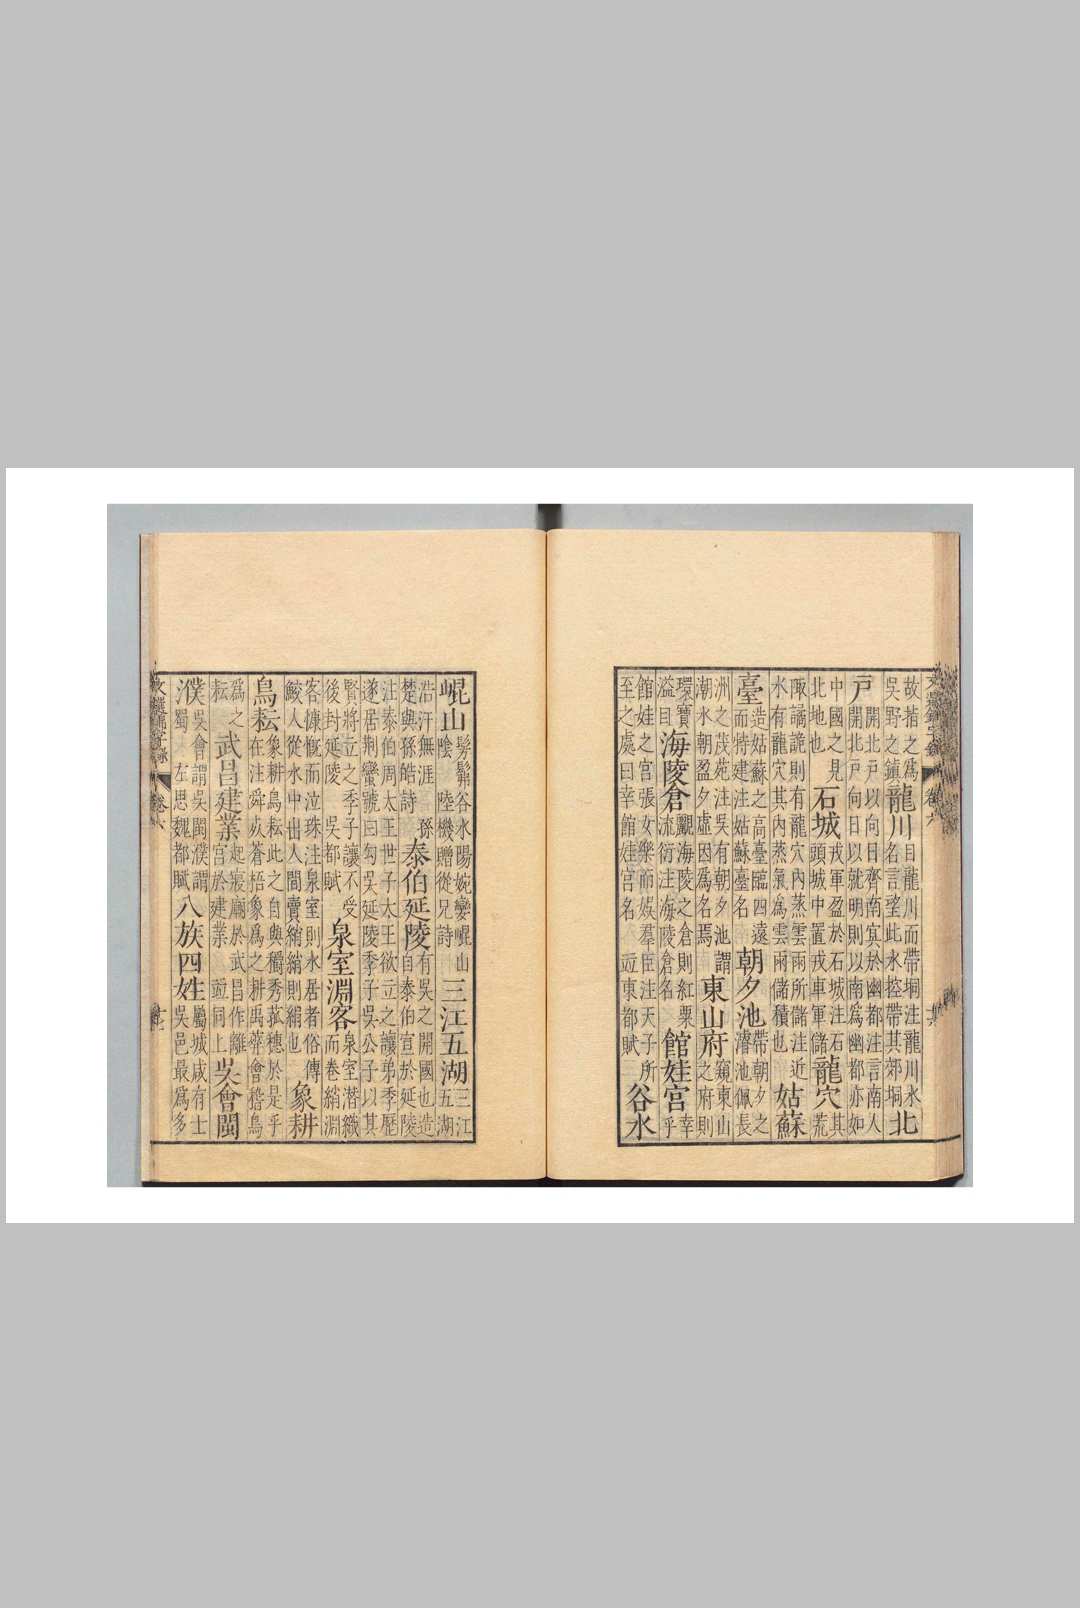 故指之為吳野之鎮龍川目龍川而帶坰注龍川水名言望此水控帶其郊坰北
戶開北戶以向日齊南冥於幽都注言南人開北戶向日以就明則以南為幽都亦如
中國之見北地也石城戎車盈於石城注石頭城中置戎車軍儲龍穴其荒
陬譎詭則有龍穴內蒸雲雨所儲注近水有龍穴其內蒸氣為雲雨儲積也姑蘇
臺造姑蘇之高臺臨四遠而特建注姑蘇臺名朝夕池帶朝夕之濬池佩長
洲之茂苑注吳有朝夕池謂潮水朝盈夕虛因為名焉東山府窺東山之府則
環寶溢目海陵倉覼海陵之倉則紅粟流衍注海陵倉名館娃宮幸乎
館娃之宮張女樂而娛羣臣注天子所至之處曰幸館娃宮名 竝東都賦谷水
崐山髣髴谷水陽婉孌崐山陰 陸機贈從兄詩三江五湖三江五湖
浩汗無涯 孫楚與孫皓詩泰伯延陵有吳之開國也造自泰伯宣於延陵
注泰伯周太王世子太王欲立之讓弟季歷遂居荆蠻號曰勾吳延陵季子吳公子以其
賢將立之季子讓不受後封延陵 吳都賦泉室淵客泉室潛織而卷綃淵
客慷慨而泣珠注泉室則水居者俗傳鮫人從水中出人間賣綃綃則絹也象耕
鳥耘象耕鳥耘此之自與穱秀菰穗於是乎在注舜葬蒼梧象為之耕禹葬會稽鳥
為之耘武昌建業起寢廟於武昌作離宮於建業 竝同上吳會閩
濮吳會謂吳閩濮謂蜀 左思魏都賦八族四姓屬城咸有士吳邑最為多
卷六